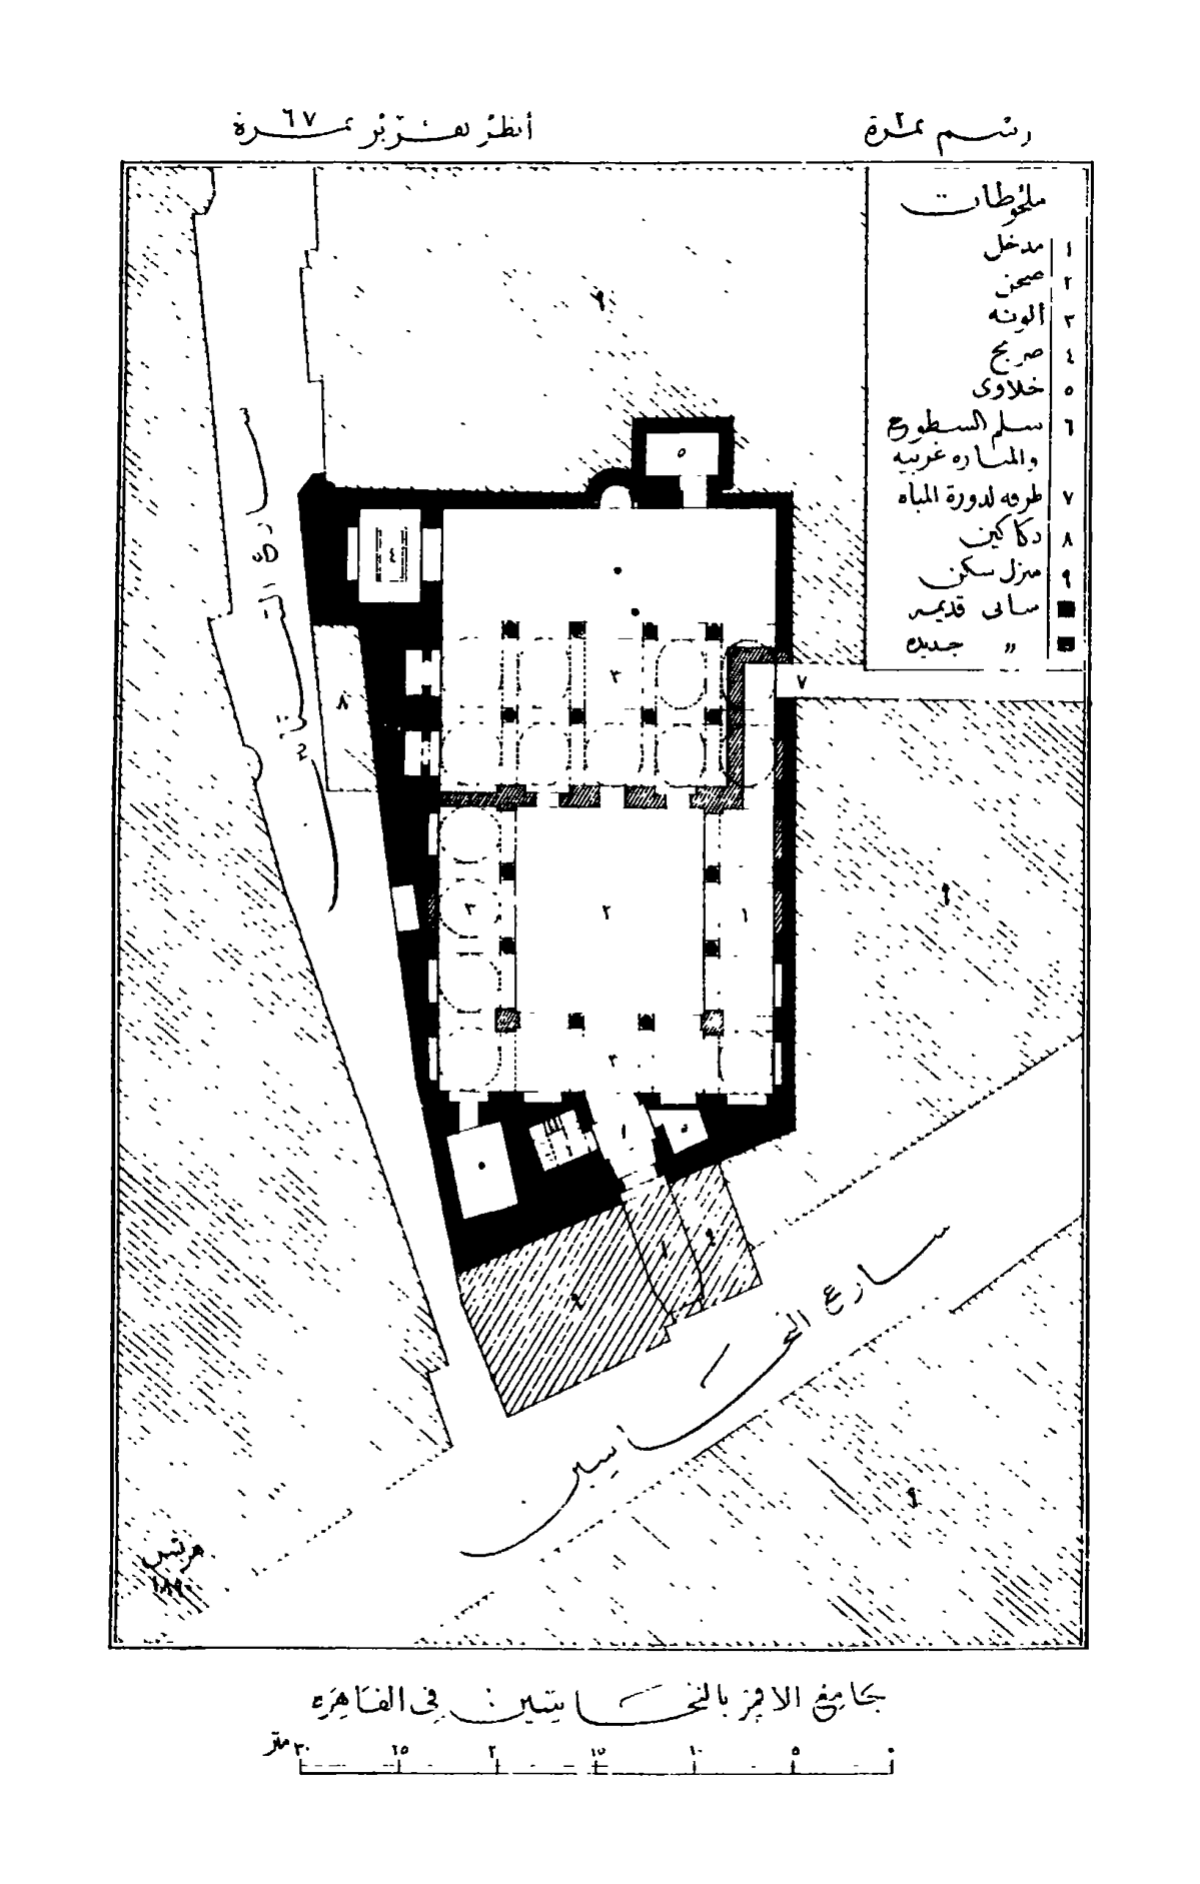 رسم نمرة ٢
أنظر تقرير نمرة ٦٧
ملحوظات
١ مدخل
٢ صحن
٣ ألونه
٤ صريح
٥ خلاوى
٦ سلم السطوح
والمناره غربيه
٧ طرقه لدورة المياه
٨ دكاكين
٩ منزل سكن
■ قديمه
■ " جديده
٩
٥
٣
٨
٧
٩
٣
٢
١
٣
١
٥
١
٩
٩
شارع النحاسين
٩
هرتس
١٨٩٠
جامع الاقمر بالنحاسين في القاهره
٠ ٥ ١٠ ١٥ ٢٠ ٢٥ ٣٠ متر